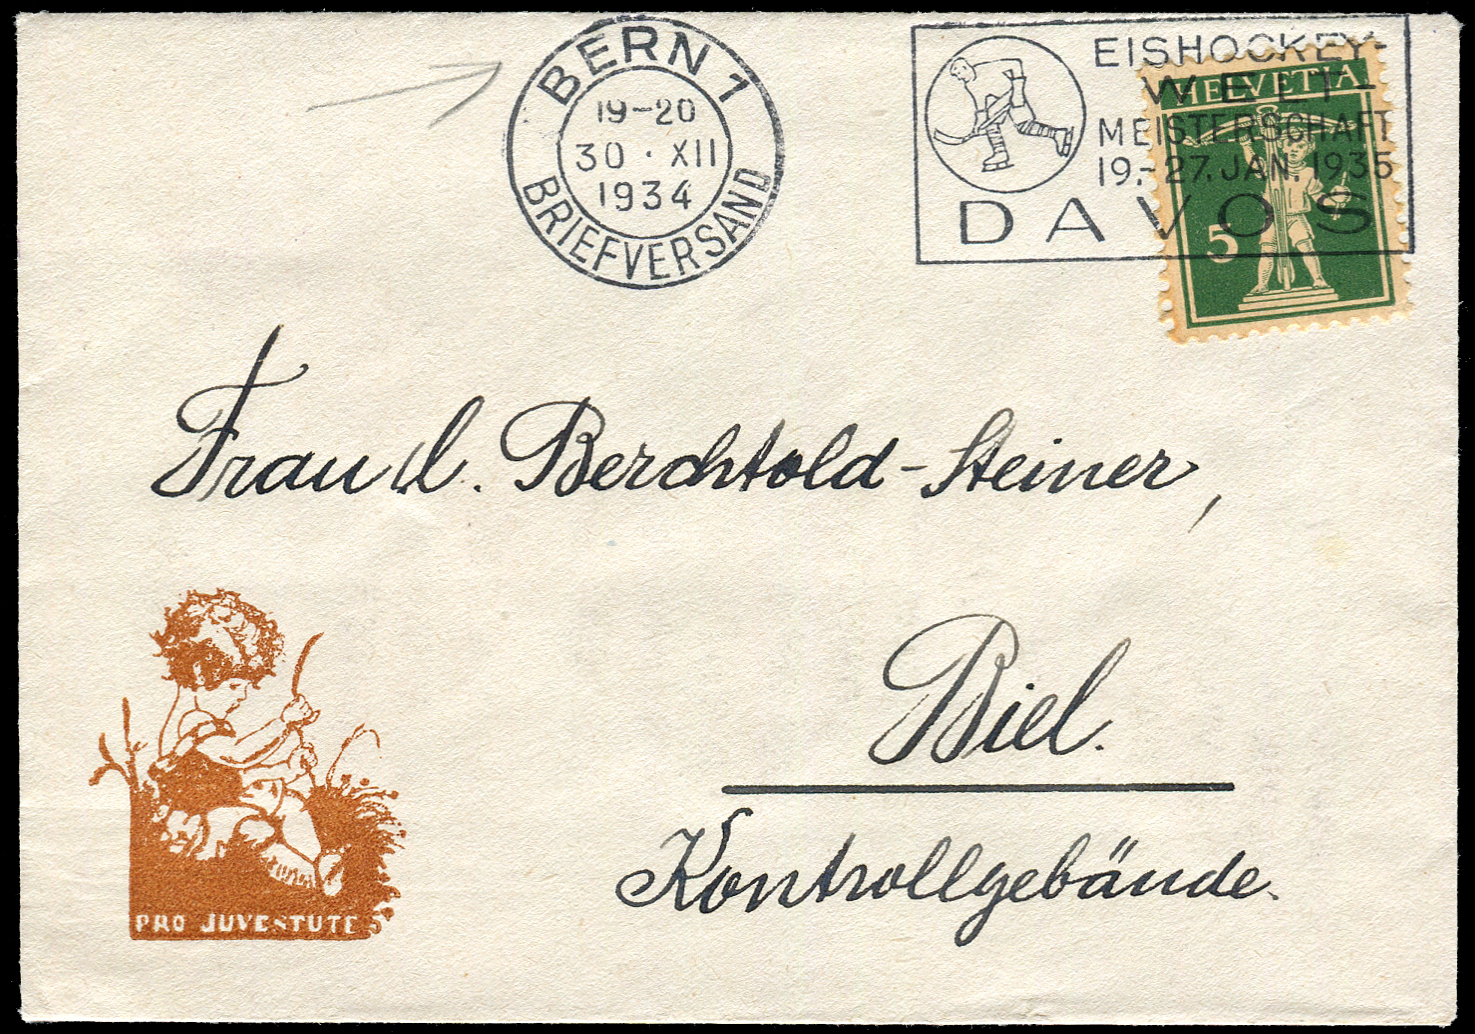 BERN 1
19-20
30 · XII
1934
BRIEFVERSAND
EISHOCKEY-
WELT-
MEISTERSCHAFT
19.-27. JAN. 1935
DAVOS
HELVETIA
5
Frau L. Berchtold-Steiner,
Biel.
Kontrollgebäude.
PRO JUVENTUTE